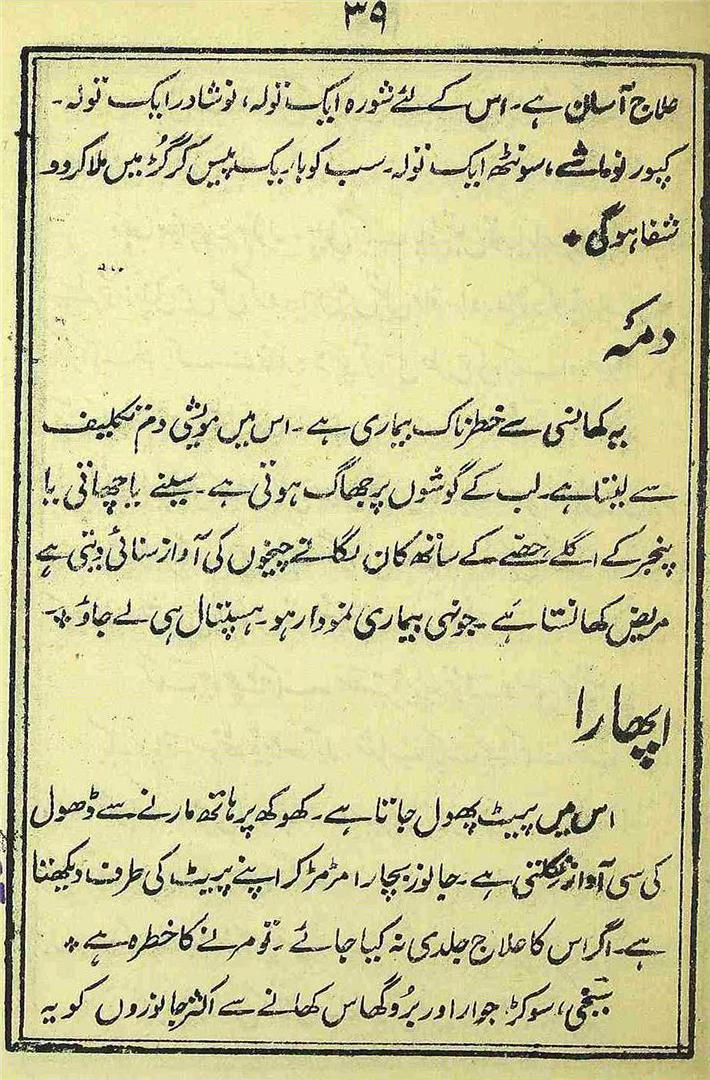 ۳۹
علاج آسان ہے۔ اس کے لئے شورہ ایک تولہ، نوشادر ایک تولہ۔
کپور نوماشے، سونٹھ ایک تولہ۔ سب کو باریک پیس کر گڑ میں ملا کر دو
شفا ہوگی ٭
دمہ
یہ کھانسی سے خطرناک بیماری ہے۔ اس میں مویشی دم تکلیف
سے لیتا ہے۔ لب کے گوشوں پر جھاگ ہوتی ہے۔ سینے یا چھاتی یا
پنجر کے اگلے حصّے کے ساتھ کان لگاتے چیخوں کی آواز سنائی دیتی ہے
مریض کھانستا ہے۔ جونہی بیماری نمودار ہو۔ ہسپتال ہی لے جاؤ ٭۔
اپھارا
اس میں پیٹ پھول جاتا ہے۔ کھوکھ پر ہاتھ مارنے سے ڈھول
کی سی آواز نکلتی ہے۔ جانور بچارا مڑ مڑ کر اپنے پیٹ کی طرف دیکھتا
ہے۔ اگر اس کا علاج جلدی نہ کیا جائے۔ تو مرنے کا خطرہ ہے ٭
سوکڑ، جوار اور برُو گھاس کھانے سے اکثر جانوروں کو یہ